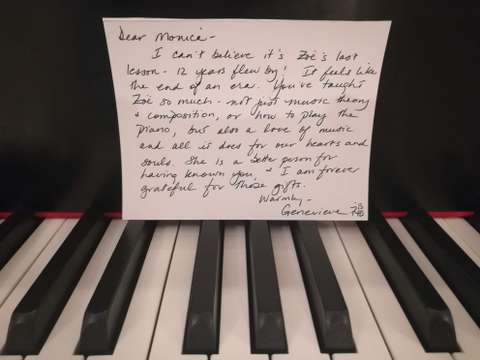 Dear Monica-
I can't believe it's Zoë's last
lesson - 12 years flew by! It feels like
the end of an era. You've taught
Zoë so much - not just music theory
+ composition, or how to play the
piano, but also a love of music
and all it does for our hearts and
souls. She is a better person for
having known you, + I am forever
grateful for those gifts.
Warmly-
Genevieve